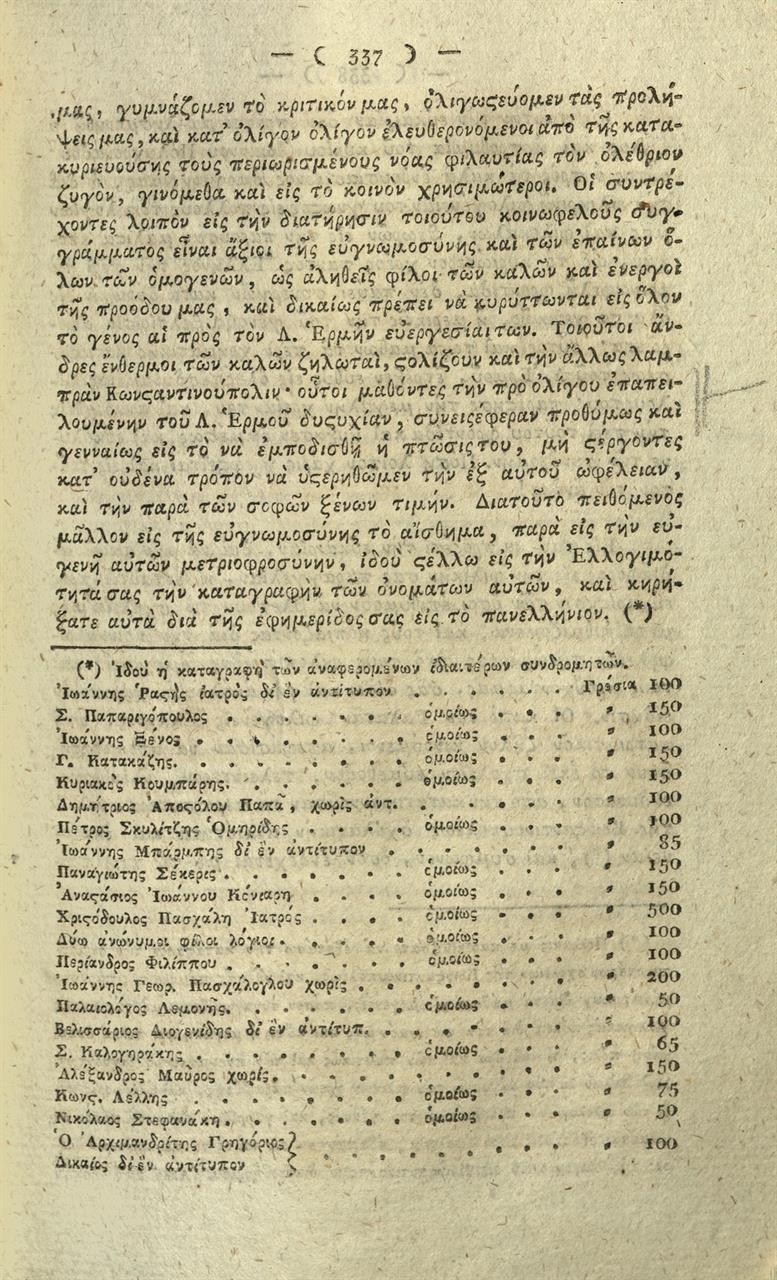 — ( 337 ) —
μας, γυμνάζομεν τὸ κριτικόν μας, ὀλιγωϛεύομεν τὰς προλή-
ψεις μας, καὶ κατ' ὀλίγον ὀλίγον ἐλευθερονόμενοι ἀπὸ τῆς κατα-
κυριευούσης τοὺς περιωρισμένους νόας φιλαυτίας τὸν ὀλέθριον
ζυγὸν, γινόμεθα καὶ εἰς τὸ κοινὸν χρησιμώτεροι. Οἱ συντρέ-
χοντες λοιπὸν εἰς τὴν διατήρησιν τοιούτου κοινωφελοῦς συγ-
γράμματος εἶναι ἄξιοι τῆς εὐγνωμοσύνης καὶ τῶν ἐπαίνων ὅ-
λων τῶν ὁμογενῶν, ὡς ἀληθεῖς φίλοι τῶν καλῶν καὶ ἐνεργοὶ
τῆς προόδου μας, καὶ δικαίως πρέπει νὰ κυρύττωνται εἰς ὅλον
τὸ γένος αἱ πρὸς τὸν Λ. Ἑρμῆν εὐεργεσίαι των. Τοιοῦτοι ἄν-
δρες ἔνθερμοι τῶν καλῶν ζηλωταὶ, ϛολίζουν καὶ τὴν ἄλλως λαμ-
πρὰν Κωνϛαντινούπολιν· οὗτοι μαθόντες τὴν πρὸ ὀλίγου ἐπαπει-
λουμένην τοῦ Λ. Ἑρμοῦ δυϛυχίαν, συνεισέφεραν προθύμως καὶ
γενναίως εἰς τὸ νὰ ἐμποδισθῇ ἡ πτῶσις του, μὴ ϛέργοντες
κατ' οὐδένα τρόπον νὰ ὑϛερηθῶμεν τὴν ἐξ αὐτοῦ ὠφέλειαν,
καὶ τὴν παρὰ τῶν σοφῶν ξένων τιμήν. Διατοῦτο πειθόμενος
μᾶλλον εἰς τῆς εὐγνωμοσύνης τὸ αἴσθημα, παρὰ εἰς τὴν εὐ-
γενῆ αὐτῶν μετριοφροσύνην, ἰδοὺ ϛέλλω εἰς τὴν Ἐλλογιμό-
τητά σας τὴν καταγραφὴν τῶν ὀνομάτων αὐτῶν, καὶ κηρύ-
ξατε αὐτὰ διὰ τῆς ἐφημερίδος σας εἰς τὸ πανελλήνιον. (*)
(*) Ἰδοὺ ἡ καταγραφὴ τῶν ἀναφερομένων ἰδιαιτέρων συνδρομητῶν.
Ἰωάννης Ῥαϛὴς ἰατρὸς δι' ἓν ἀντίτυπον . . . . . . Γρόσια 100
Σ. Παπαριγόπουλος . . . . . . . ὁμοίως . . . " 150
Ἰωάννης Ξένος . . . . . . . ὁμοίως . . . " 100
Γ. Κατακάζης. . . . . . . . ὁμοίως . . . " 150
Κυριακὸς Κουμπάρης. . . . . . . ὁμοίως . . . " 150
Δημήτριος Ἀποϛόλου Παπᾶ, χωρὶς ἀντ. . . . . . " 100
Πέτρος Σκυλίτζης Ὁμηρίδης . . . . ὁμοίως . . . " 100
Ἰωάννης Μπάρμπης δι' ἓν ἀντίτυπον . . . . . . " 85
Παναγιώτης Σέκερις . . . . . . . ὁμοίως . . . " 150
Ἀναϛάσιος Ἰωάννου Κόνιαρη . . . . ὁμοίως . . . " 150
Χριϛόδουλος Πασχάλη Ἰατρός . . . . ὁμοίως . . . " 500
Δύω ἀνώνυμοι φίλοι λόγιοι . . . . . ὁμοίως . . . " 100
Περίανδρος Φιλίππου . . . . . . . ὁμοίως . . . " 100
Ἰωάννης Γεωρ. Πασχάλογλου χωρὶς . . . . . . . " 200
Παλαιολόγος Λεμονῆς. . . . . . . ὁμοίως . . . " 50
Βελισσάριος Διογενίδης δι' ἓν ἀντίτυπ. . . . . . . " 100
Σ. Καλογηράκης . . . . . . . . ὁμοίως . . . " 65
Ἀλέξανδρος Μαῦρος χωρίς. . . . . . . . . . " 150
Κωνϛ. Λέλλης . . . . . . . ὁμοίως . . . " 75
Νικόλαος Στεφανάκη . . . . . . . ὁμοίως . . . " 50
Ὁ Ἀρχιμανδρίτης Γρηγόριος } . . . . . . . . " 100
Δικαῖος δι' ἓν ἀντίτυπον